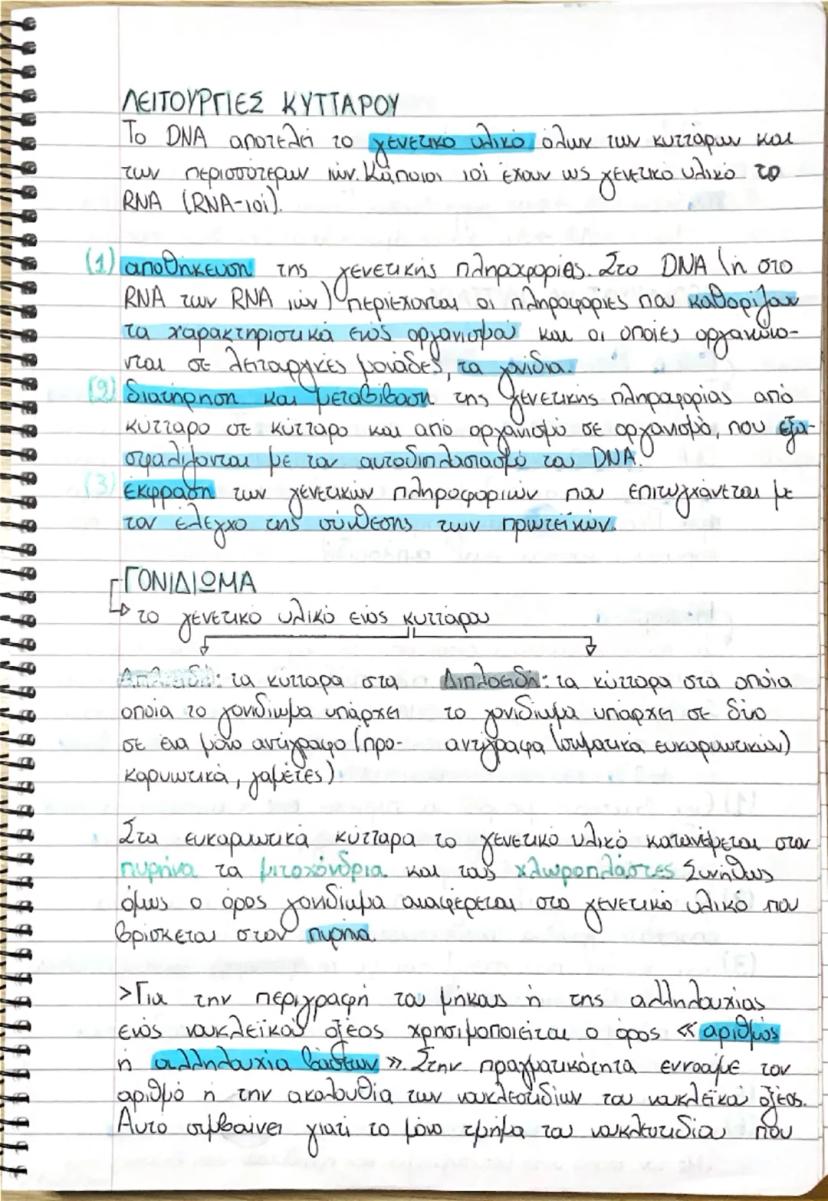 ΛΕΙΤΟΥΡΓΙΕΣ ΚΥΤΤΑΡΟΥ
Το DNA αποτελεί το γενετικό υλικό όλων των κυττάρων και
των περισσότερων ιών. Κάποιοι ιοί έχουν ως γενετικό υλικό το
RNA (RNA-ιοί).
(1) αποθήκευση της γενετικής πληροφορίας. Στο DNA (ή στο
RNA των RNA ιών) περιέχονται οι πληροφορίες που καθορίζουν
τα χαρακτηριστικά ενός οργανισμού και οι οποίες οργανώνο-
νται σε λειτουργικές μονάδες, τα γονίδια.
(2) διατήρηση και μεταβίβαση της γενετικής πληροφορίας από
κύτταρο σε κύτταρο και από οργανισμό σε οργανισμό, που εξα-
σφαλίζονται με τον αυτοδιπλασιασμό του DNA.
(3) έκφραση των γενετικών πληροφοριών που επιτυγχάνεται με
τον έλεγχο της σύνθεσης των πρωτεϊνών.
ΓΟΝΙΔΙΩΜΑ
το γενετικό υλικό ενός κυττάρου
Απλοειδή: τα κύτταρα στα
οποία το γονιδίωμα υπάρχει
σε ένα μόνο αντίγραφο (προ-
καρυωτικά, γαμέτες)
Διπλοειδή: τα κύτταρα στα οποία
το γονιδίωμα υπάρχει σε δύο
αντίγραφα (σωματικά ευκαρυωτικών)
Στα ευκαρυωτικά κύτταρα το γενετικό υλικό κατανέμεται στον
πυρήνα τα μιτοχόνδρια και τους χλωροπλάστες. Συνήθως
όμως ο όρος γονιδίωμα αναφέρεται στο γενετικό υλικό που
βρίσκεται στον πυρήνα.
>Για την περιγραφή του μήκους ή της αλληλουχίας
ενός νουκλεϊκού οξέος χρησιμοποιείται ο όρος «αριθμός
ή αλληλουχία βάσεων». Στην πραγματικότητα εννοούμε τον
αριθμό ή την ακολουθία των νουκλεοτιδίων του νουκλεϊκού οξέος.
Αυτο συμβαίνει γιατί το μόνο τμήμα του νουκλευτιδίου που